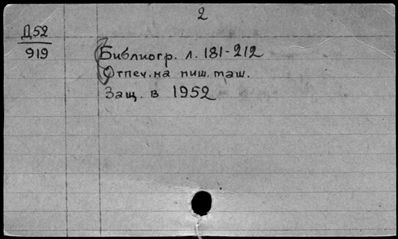 2
Д52
919
Библиогр. л. 181-212
Отпеч. на пиш. маш.
Защ. в 1952